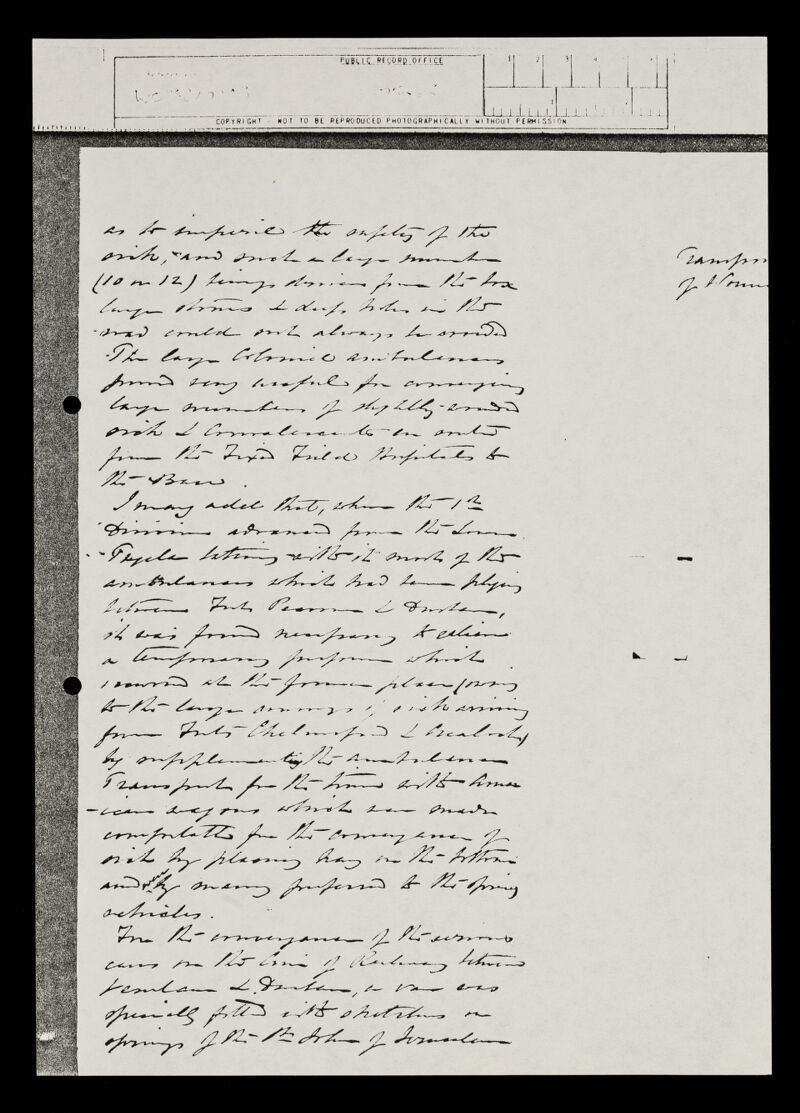 PUBLIC RECORD OFFICE
1 2 3 4 5 6
COPYRIGHT - NOT TO BE REPRODUCED PHOTOGRAPHICALLY WITHOUT PERMISSION
as to imperil the safety of the
sick, and such a large number
(10 or 12) being driven from the box
large stones & deep holes in the
road could not always be avoided
The large Colonial ambulances
proved very useful for conveying
large numbers of slightly wounded
sick & Convalescents en route
from the Fixed Field Hospitals to
the Base.
I may add that, when the 1st
Division advanced from the Lower
Tugela taking with it most of the
ambulances which had been plying
between Forts Pearson & Durban,
it was found necessary to relieve
a temporary pressure which
occurred at the former place (owing
to the large convoys of sick arriving
from Forts Chelmsford & Crealock)
by supplementing the ambulance
Transport for the time with Amer
-ican wagons which were made
comfortable for the conveyance of
sick by placing hay on the bottom
and by many preferred to the spring
vehicles.
For the conveyance of the serious
cases on the line of Railway between
Verulam & Durban, a van was
specially fitted with stretchers on
springs of the St John of Jerusalem
Transpor
of Woun